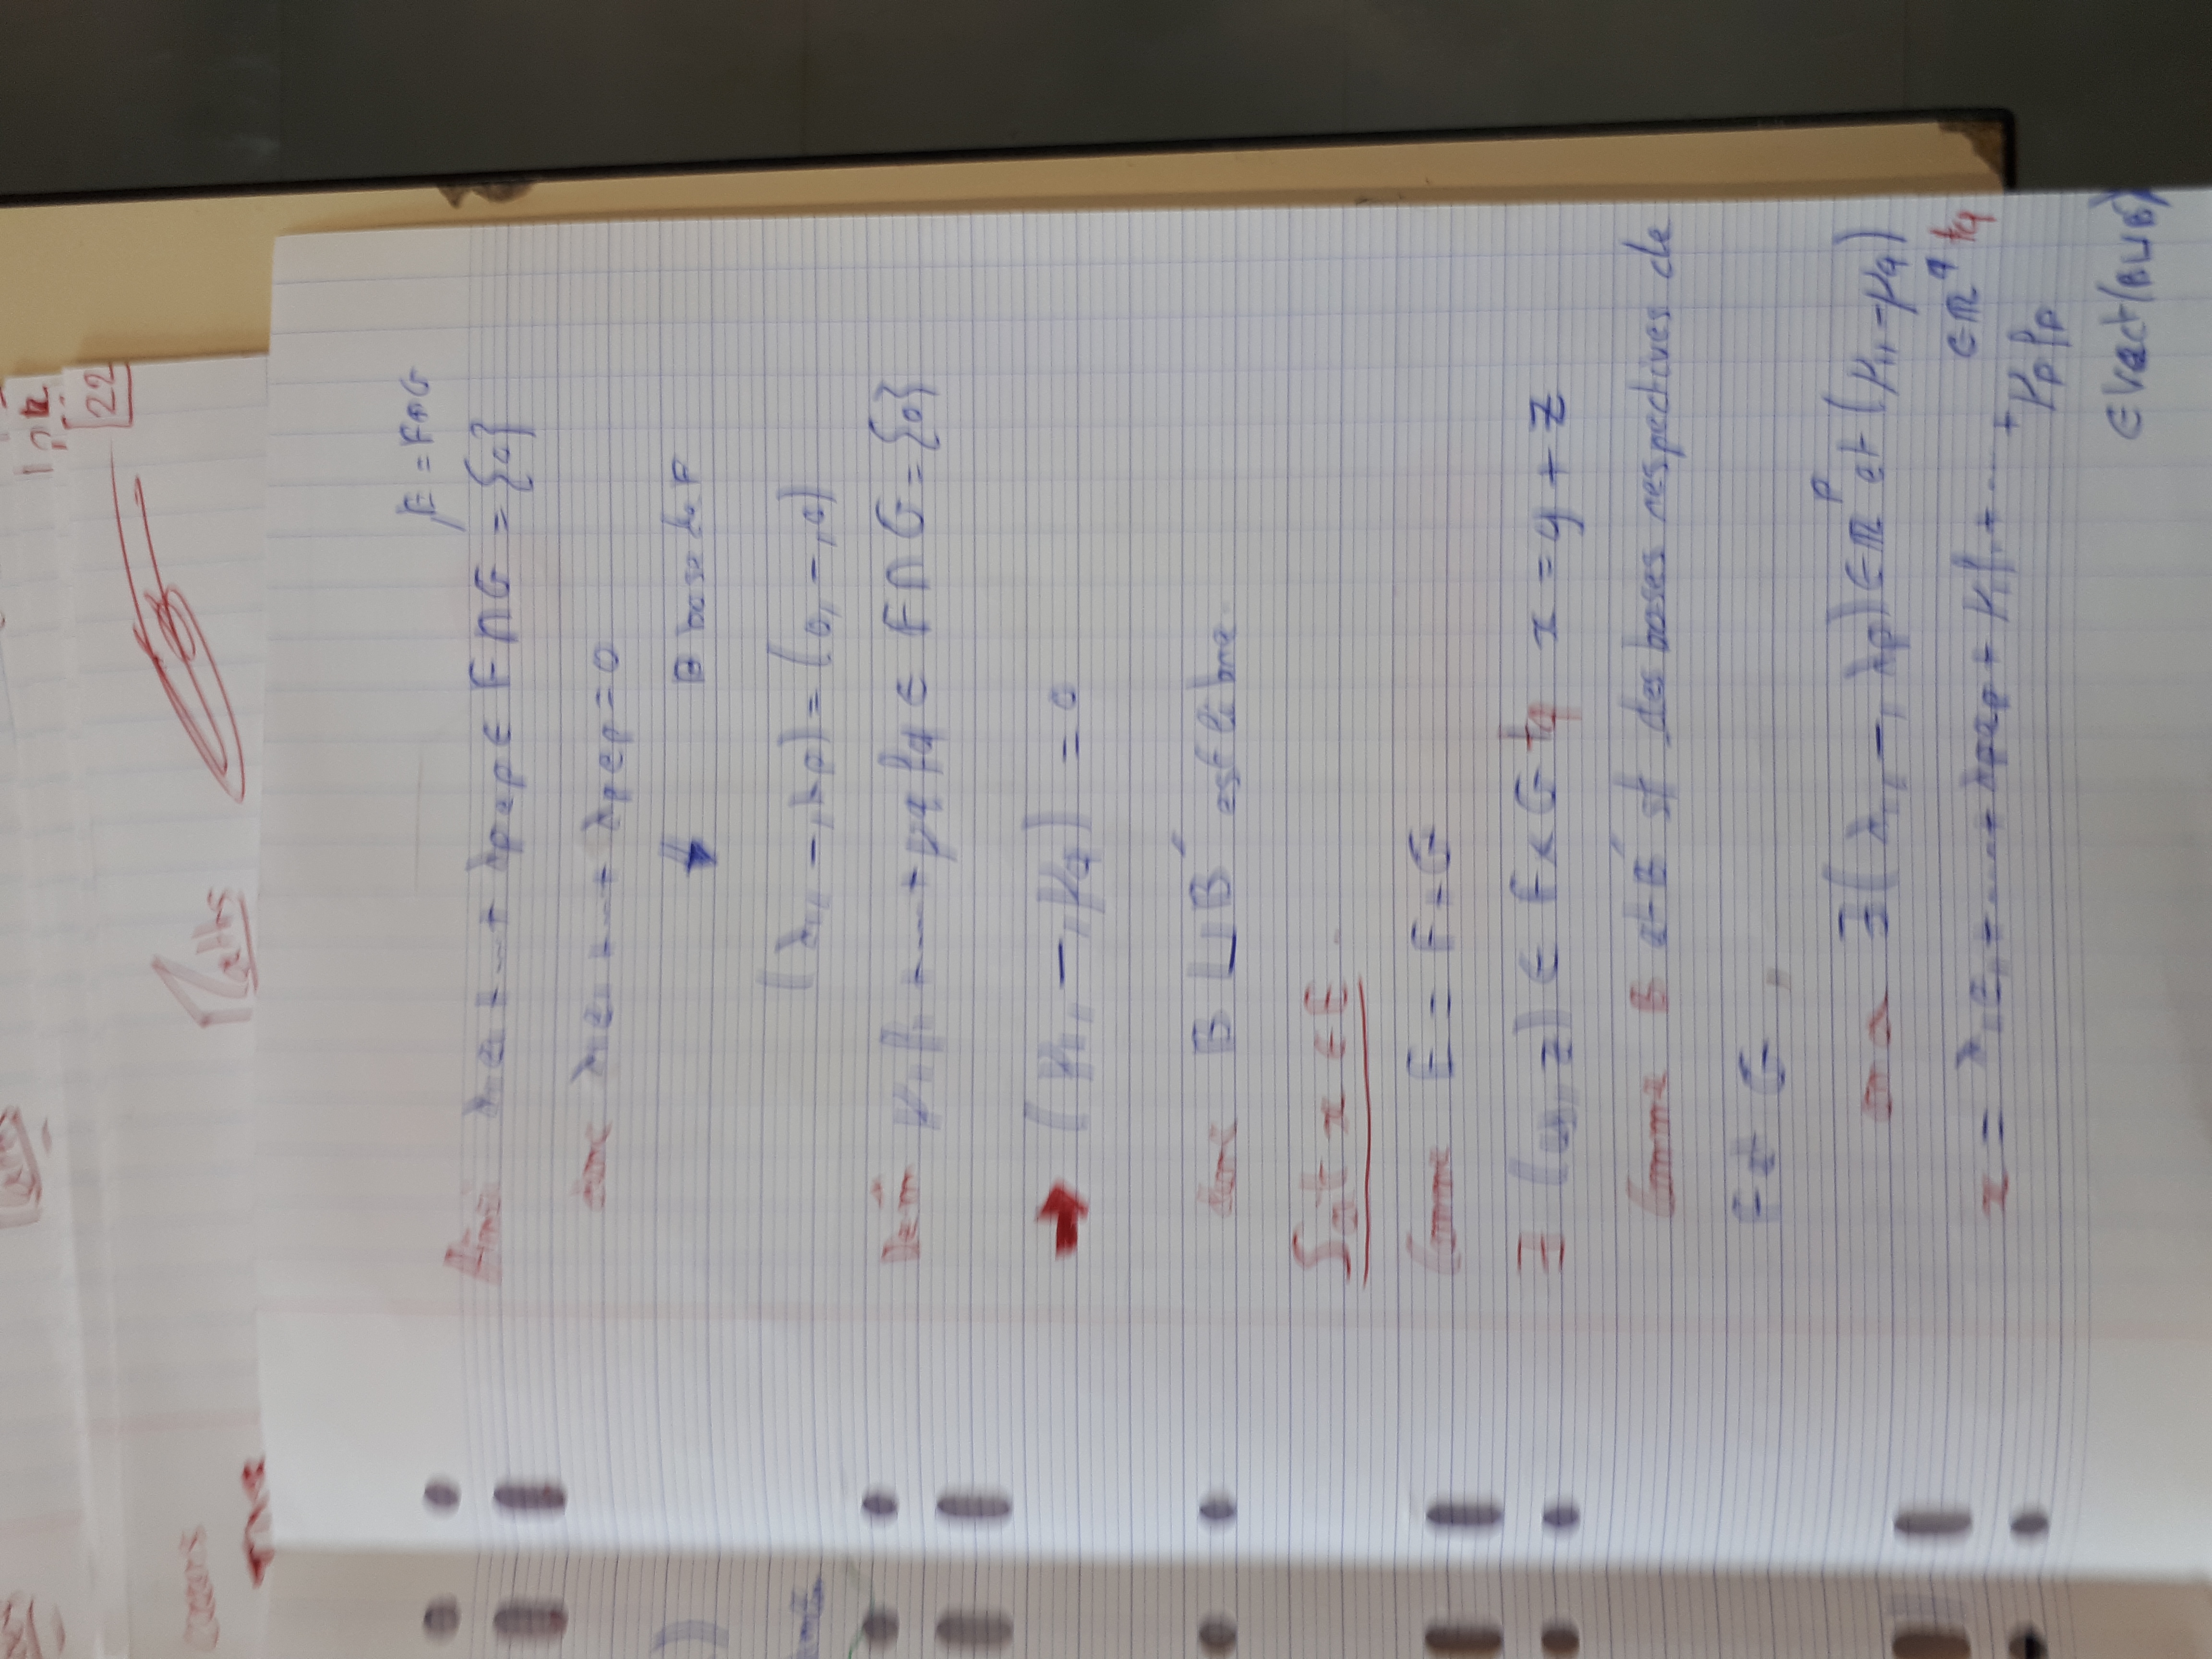 Maths
22
E = F⊕G
Ainsi λ1e1 + ... + λpep ∈ F ∩ G = {0}
donc λ1e1 + ... + λpep = 0
↓ B base de F
(λ1, -, λp) = (0, -, 0)
Dem μ1f1 + ... + μqfq ∈ F ∩ G = {0}
→ (μ1, -, μq) = 0
donc B ⊔ B' est libre.
Soit x ∈ E.
Comme E = F + G
∃ (y, z) ∈ F × G tq x = y + z
Comme B et B' st des bases respectives de
F et G,
on a ∃ (λ1, -, λp) ∈ ℝ^p et (μ1, -, μq)
∈ ℝ^q tq
x = λ1e1 + ... + λpep + μ1f1 + ... +
μpfp
∈ Vect(B⊔B')
cours